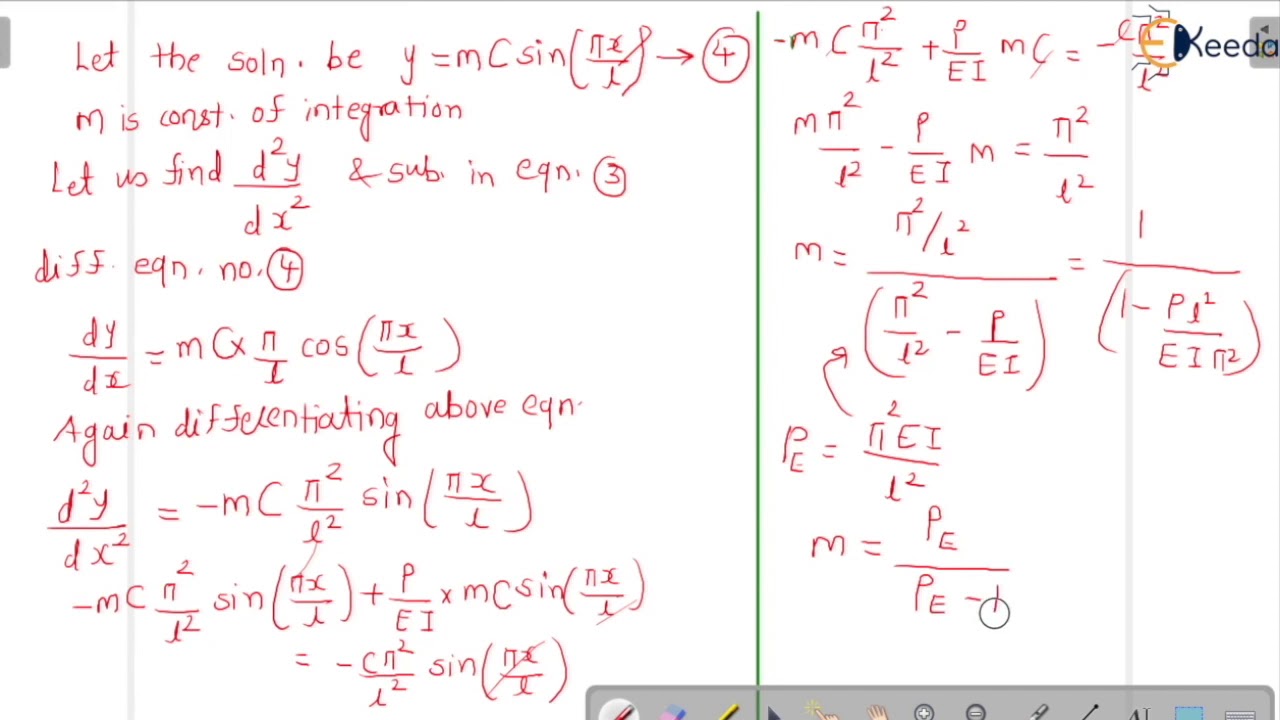 Let the soln. be y = mC sin(πx/l) → ④
m is const. of integration
Let us find d²y/dx² & sub. in eqn. ③
diff. eqn. no. ④
dy/dx = mC × π/l cos(πx/l)
Again differentiating above eqn.
d²y/dx² = -mC π²/l² sin(πx/l)
-mC π²/l² sin(πx/l) + P/EI × mC sin(πx/l)
= -Cπ²/l² sin(πx/l)
-mC π²/l² + P/EI mC = -Cπ²/l²
Keeda
mπ²/l² - P/EI m = π²/l²
m = π²/l² / (π²/l² - P/EI) = 1 / (1 - Pl²/EIπ²)
P_E = π²EI/l²
m = P_E / P_E -